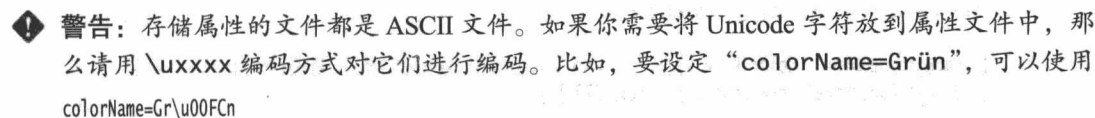 警告：存储属性的文件都是 ASCII 文件。如果你需要将 Unicode 字符放到属性文件中，那
么请用 \uxxxx 编码方式对它们进行编码。比如，要设定“colorName=Grün”，可以使用
colorName=Gr\u00FCn